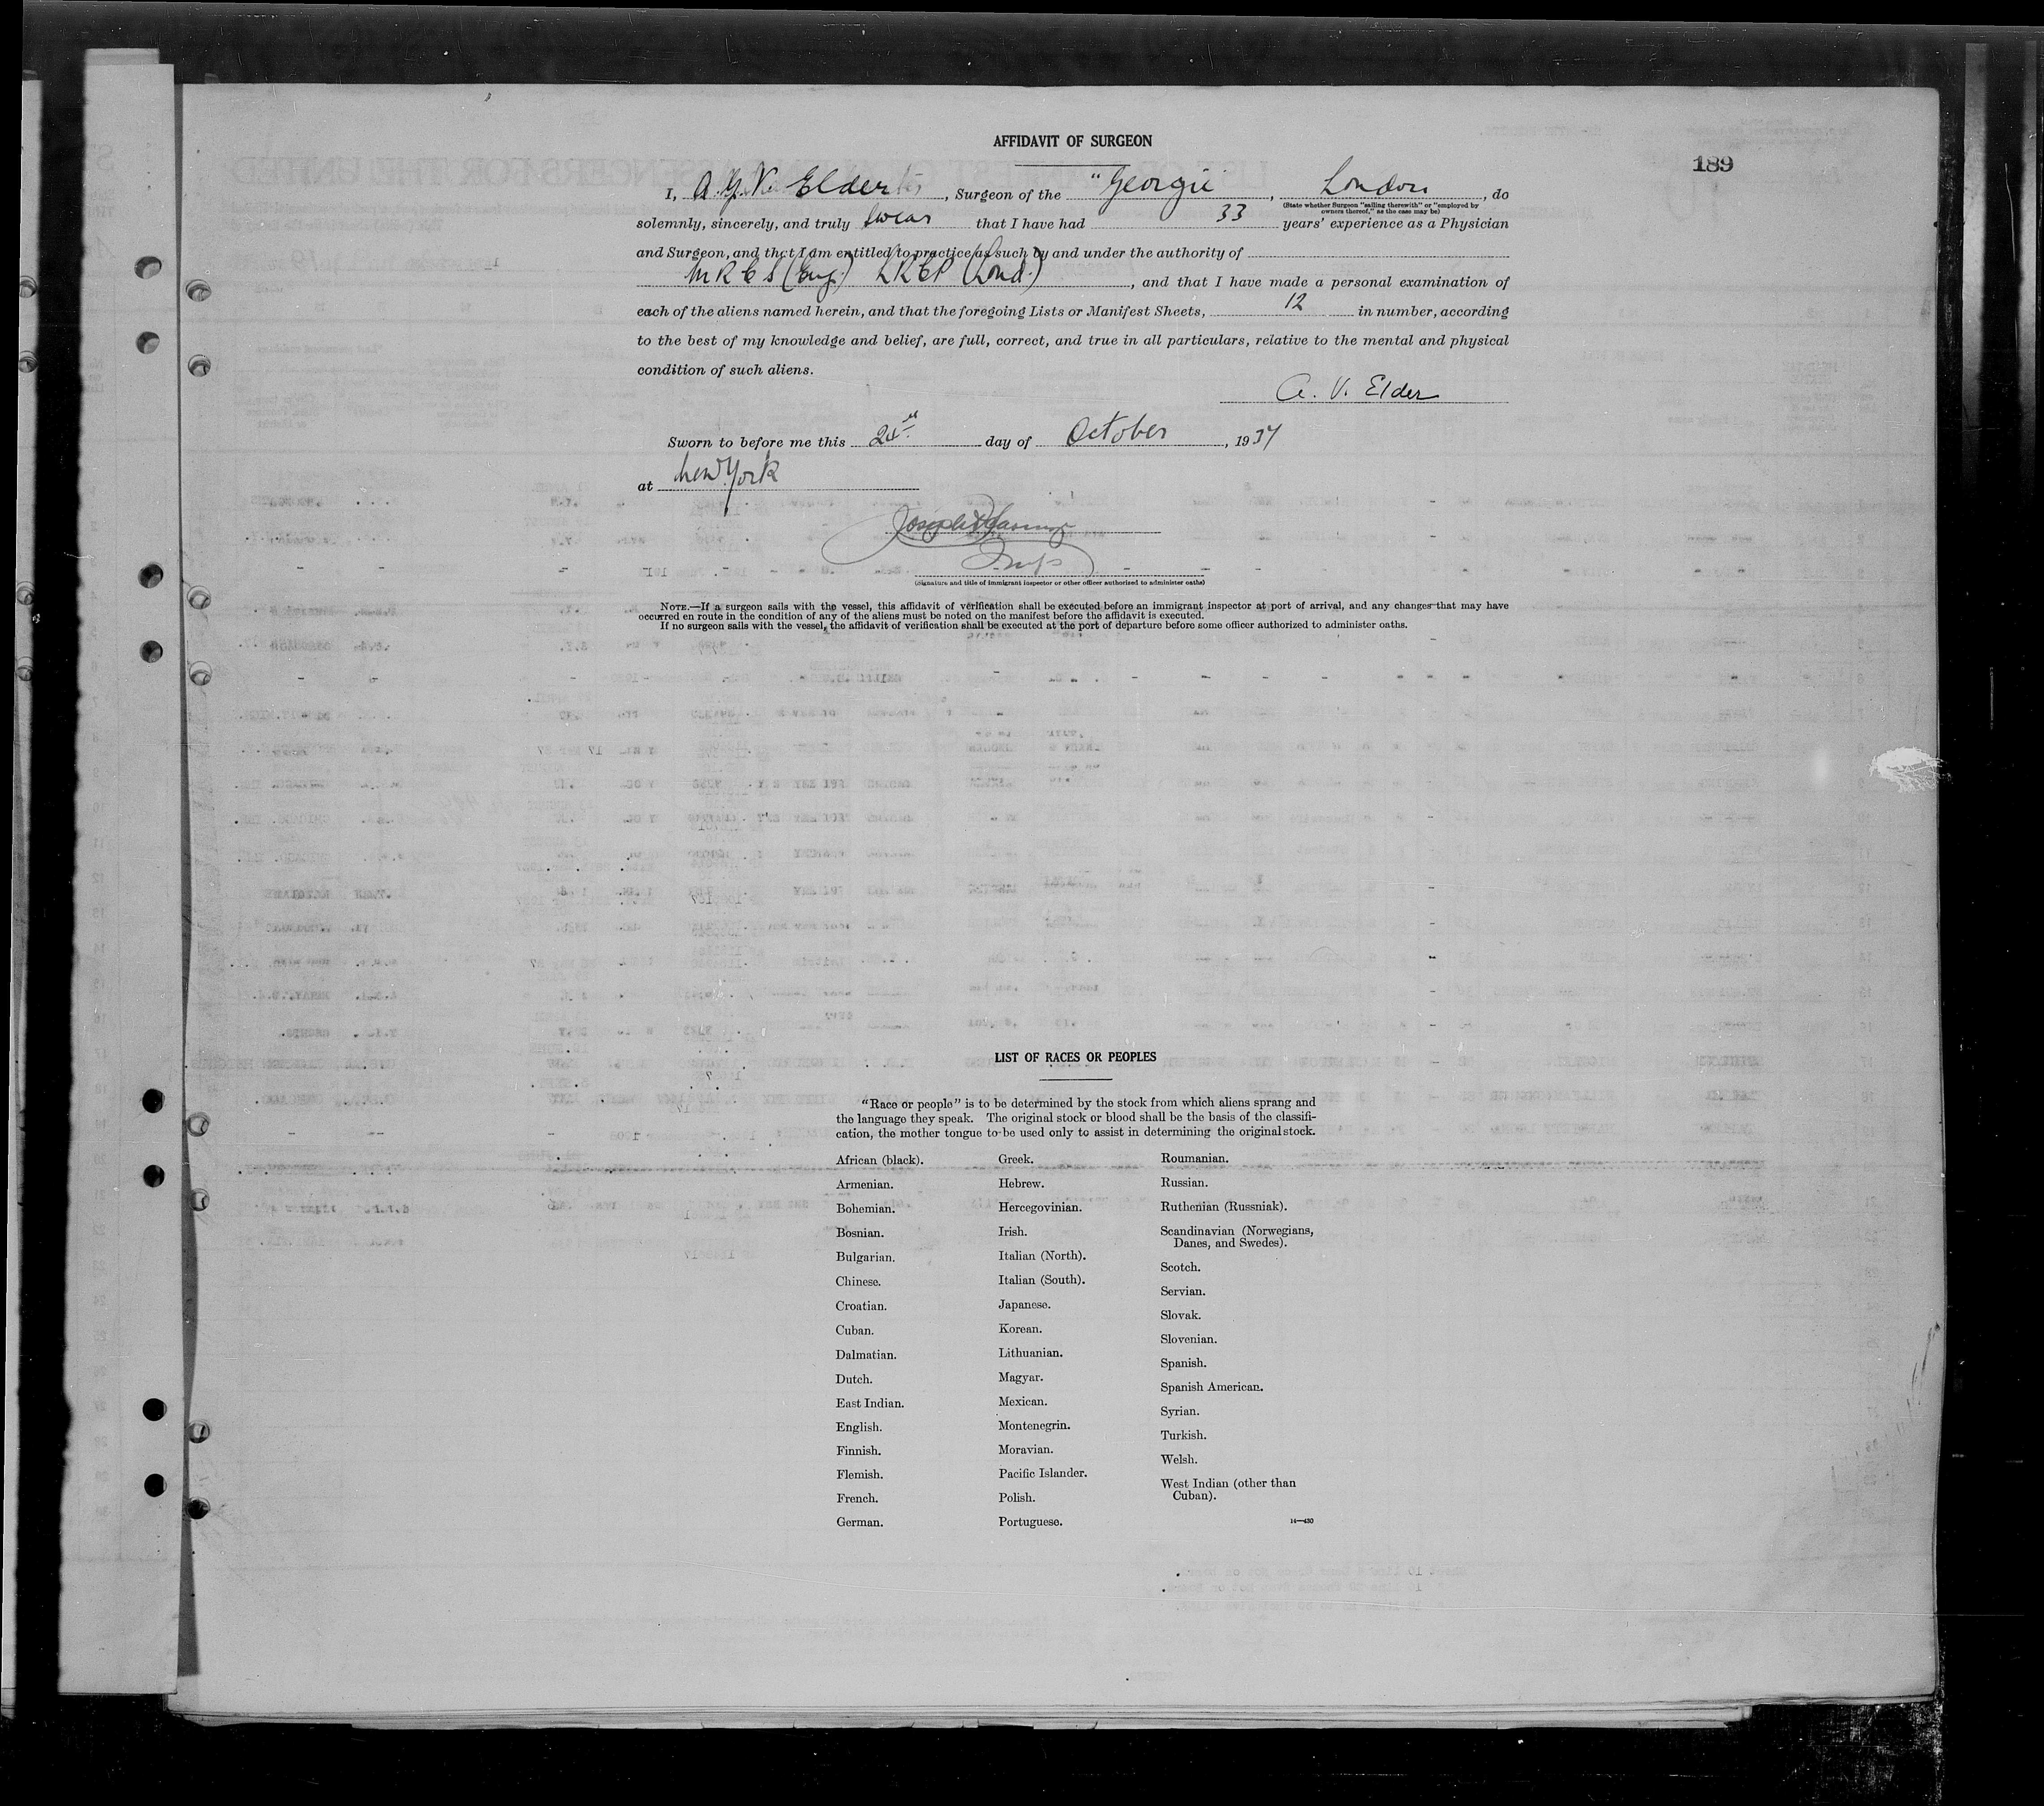 AFFIDAVIT OF SURGEON
189
I, A. V. Elder, Surgeon of the "Georgic", London, do
(State whether Surgeon "sailing therewith" or "employed by
owners thereof," as the case may be)
solemnly, sincerely, and truly swear that I have had 33 years' experience as a Physician
and Surgeon, and that I am entitled to practice as such by and under the authority of
MRCS (Eng.) LRCP (Lond.), and that I have made a personal examination of
each of the aliens named herein, and that the foregoing Lists or Manifest Sheets, 12 in number, according
to the best of my knowledge and belief, are full, correct, and true in all particulars, relative to the mental and physical
condition of such aliens.
A. V. Elder
Sworn to before me this day of October, 1937
at New York
Joseph
Insp
(Signature and title of immigrant inspector or other officer authorized to administer oaths)
NOTE.—If a surgeon sails with the vessel, this affidavit of verification shall be executed before an immigrant inspector at port of arrival, and any changes that may have
occurred en route in the condition of any of the aliens must be noted on the manifest before the affidavit is executed.
If no surgeon sails with the vessel, the affidavit of verification shall be executed at the port of departure before some officer authorized to administer oaths.
LIST OF RACES OR PEOPLES
"Race or people" is to be determined by the stock from which aliens sprang and
the language they speak. The original stock or blood shall be the basis of the classifi-
cation, the mother tongue to be used only to assist in determining the original stock.
African (black).
Armenian.
Bohemian.
Bosnian.
Bulgarian.
Chinese.
Croatian.
Cuban.
Dalmatian.
Dutch.
East Indian.
English.
Finnish.
Flemish.
French.
German.
Greek.
Hebrew.
Hercegovinian.
Irish.
Italian (North).
Italian (South).
Japanese.
Korean.
Lithuanian.
Magyar.
Mexican.
Montenegrin.
Moravian.
Pacific Islander.
Polish.
Portuguese.
Roumanian.
Russian.
Ruthenian (Russniak).
Scandinavian (Norwegians,
Danes, and Swedes).
Scotch.
Servian.
Slovak.
Slovenian.
Spanish.
Spanish American.
Syrian.
Turkish.
Welsh.
West Indian (other than
Cuban).
14—430